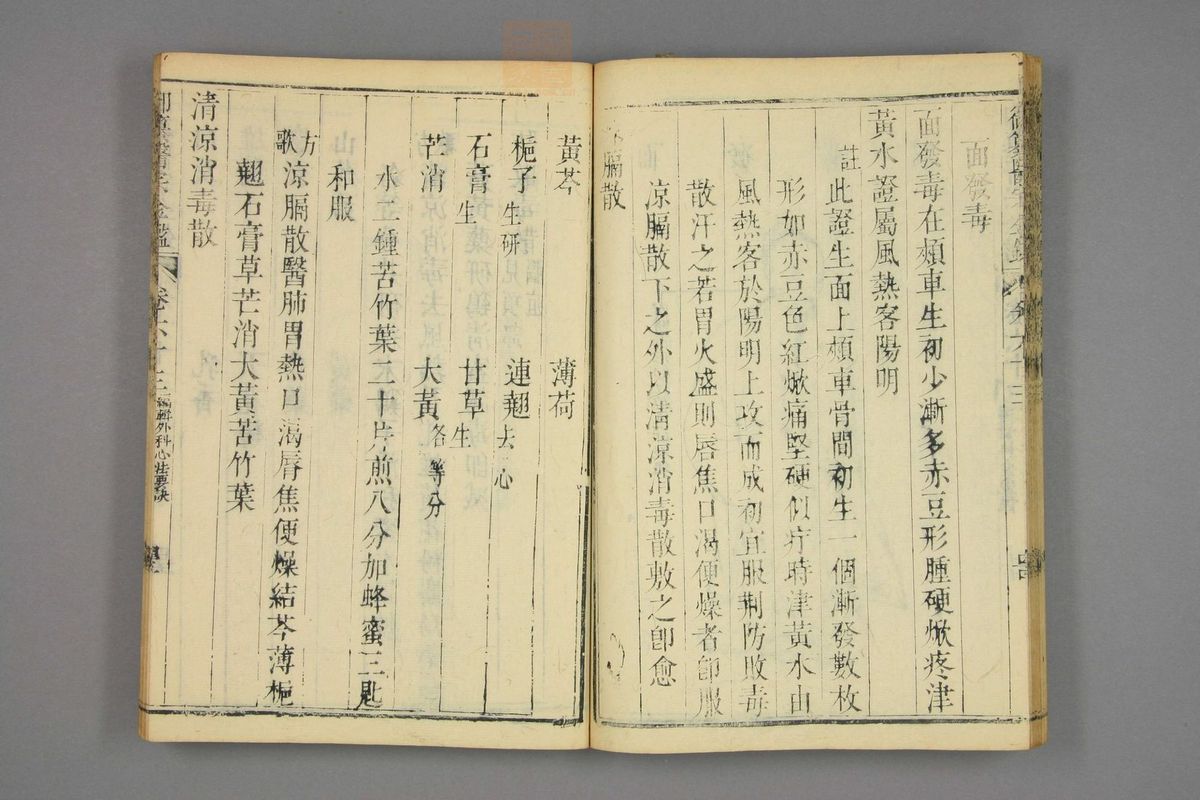 御纂醫宗金鑑 卷六十三
面發毒
面發毒在頰車生初少漸多赤豆形腫硬焮疼津
黃水證屬風熱客陽明
註此證生面上頰車骨間初生一個漸發數枚
形如赤豆色紅焮痛堅硬似疔時津黃水由
風熱客於陽明上攻而成初宜服荆防敗毒
散汗之若胃火盛則唇焦口渴便燥者卽服
凉膈散下之外以清凉消毒散敷之卽愈
膈散
黃芩 薄荷
梔子生研 連翹去心
石膏生 甘草生
芒消 大黃各等分
水二鍾苦竹葉二十片煎八分加蜂蜜三匙
和服
方歌涼膈散醫肺胃熱口渴唇焦便燥結芩薄梔
翹石膏草芒消大黃苦竹葉
清涼消毒散
御纂醫宗金鑑 卷六十三 編輯外科心法要訣